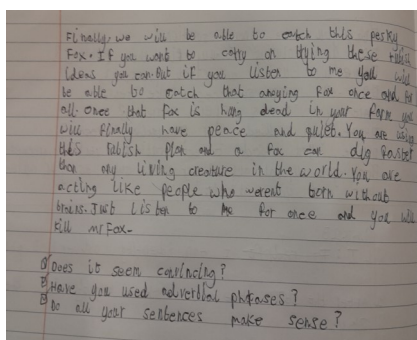 Finally, we will be able to catch this pesky
Fox. If you want to carry on trying these rubish
ideas you can. But if you listen to me you will
be able to catch that anoying Fox once and for
all. Once that Fox is hung dead in your farm you
will finally have peace and quiet. You are using
this rubish plan and a fox can dig faster
than any living creature in the world. You are
acting like people who werent born without
brains. Just listen to me for once and you will
kill mr Fox.
Does it seem convincing?
Have you used adverbial phrases?
Do all your sentences make sense?